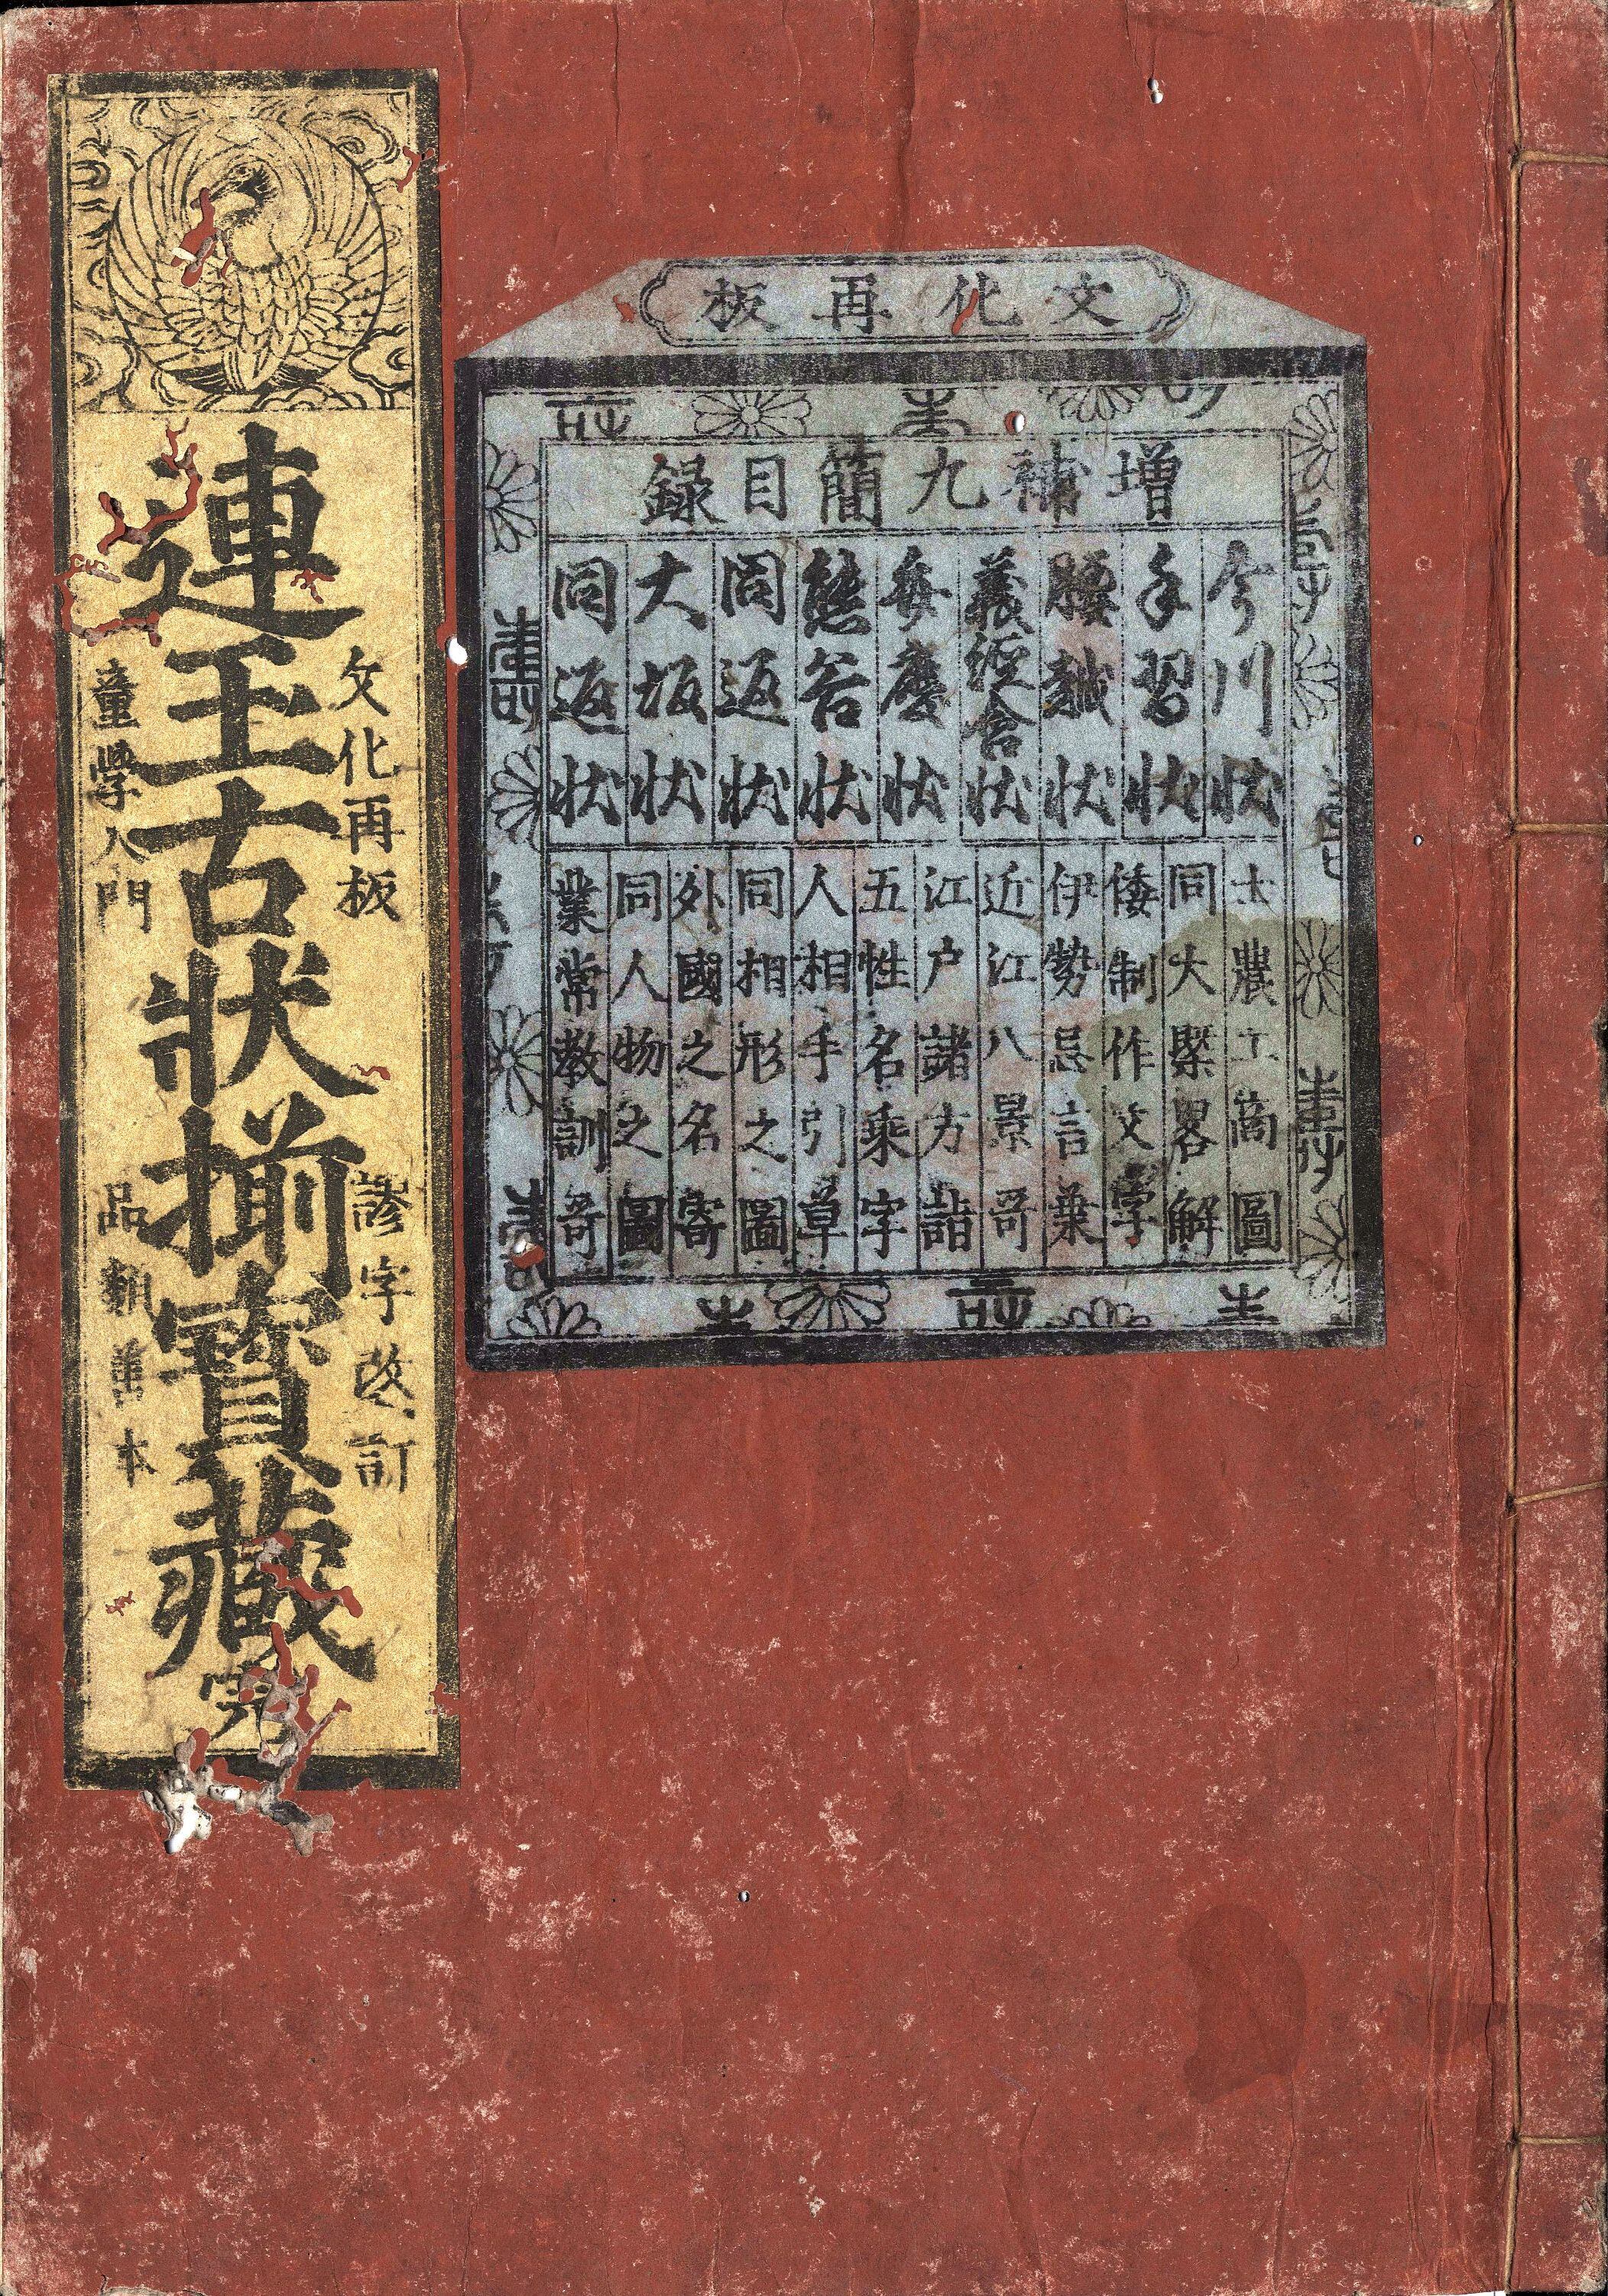 文化再板
増補九簡目録
今川状
手習状
腰越状
義経含状
弁慶状
熊谷状
同返状
大坂状
同返状
士農工商圖
同大槩畧解
倭制作文字
伊勢忌言葉
近江八景哥
江户諸方詣
五性名乗字
人相手引草
同相形之圖
外國之名寄
同人物之圖
業常教訓哥
文化再板
謬字改訂
連玉古狀揃寳蔵 完
童學入門
品類本